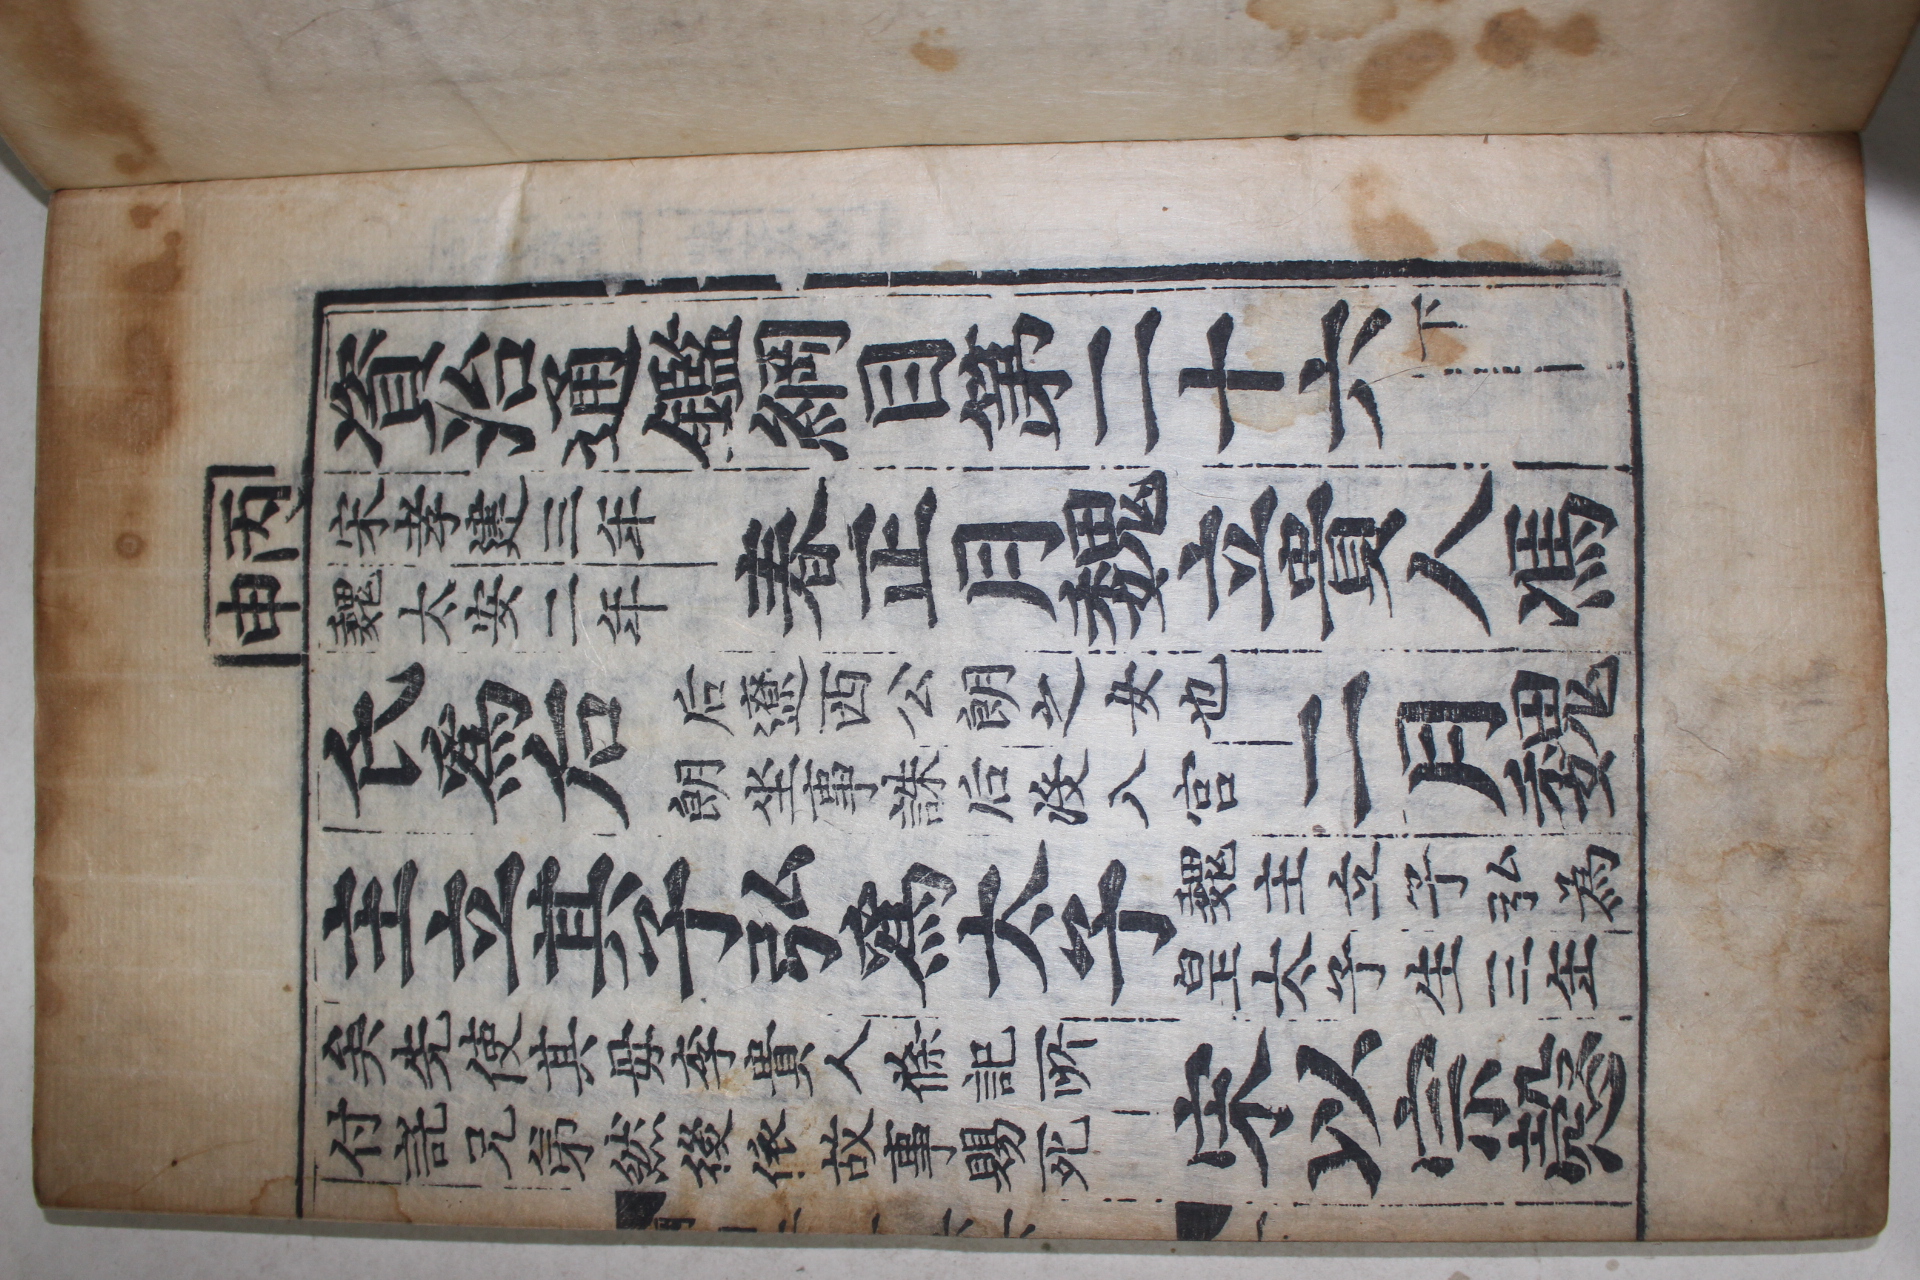 資治通鑑綱目第二十六下
丙申
宋孝建三年
魏太安二年
春正月魏立貴人馮
氏爲后
后遼西公朗之女也
朗坐事誅后没入宮
二月魏
主立其子弘爲太子
魏主立子弘爲
皇太子生三年
矣先使其母李貴人條記所
付託兄弟然後依故事賜死
宋以宗愨